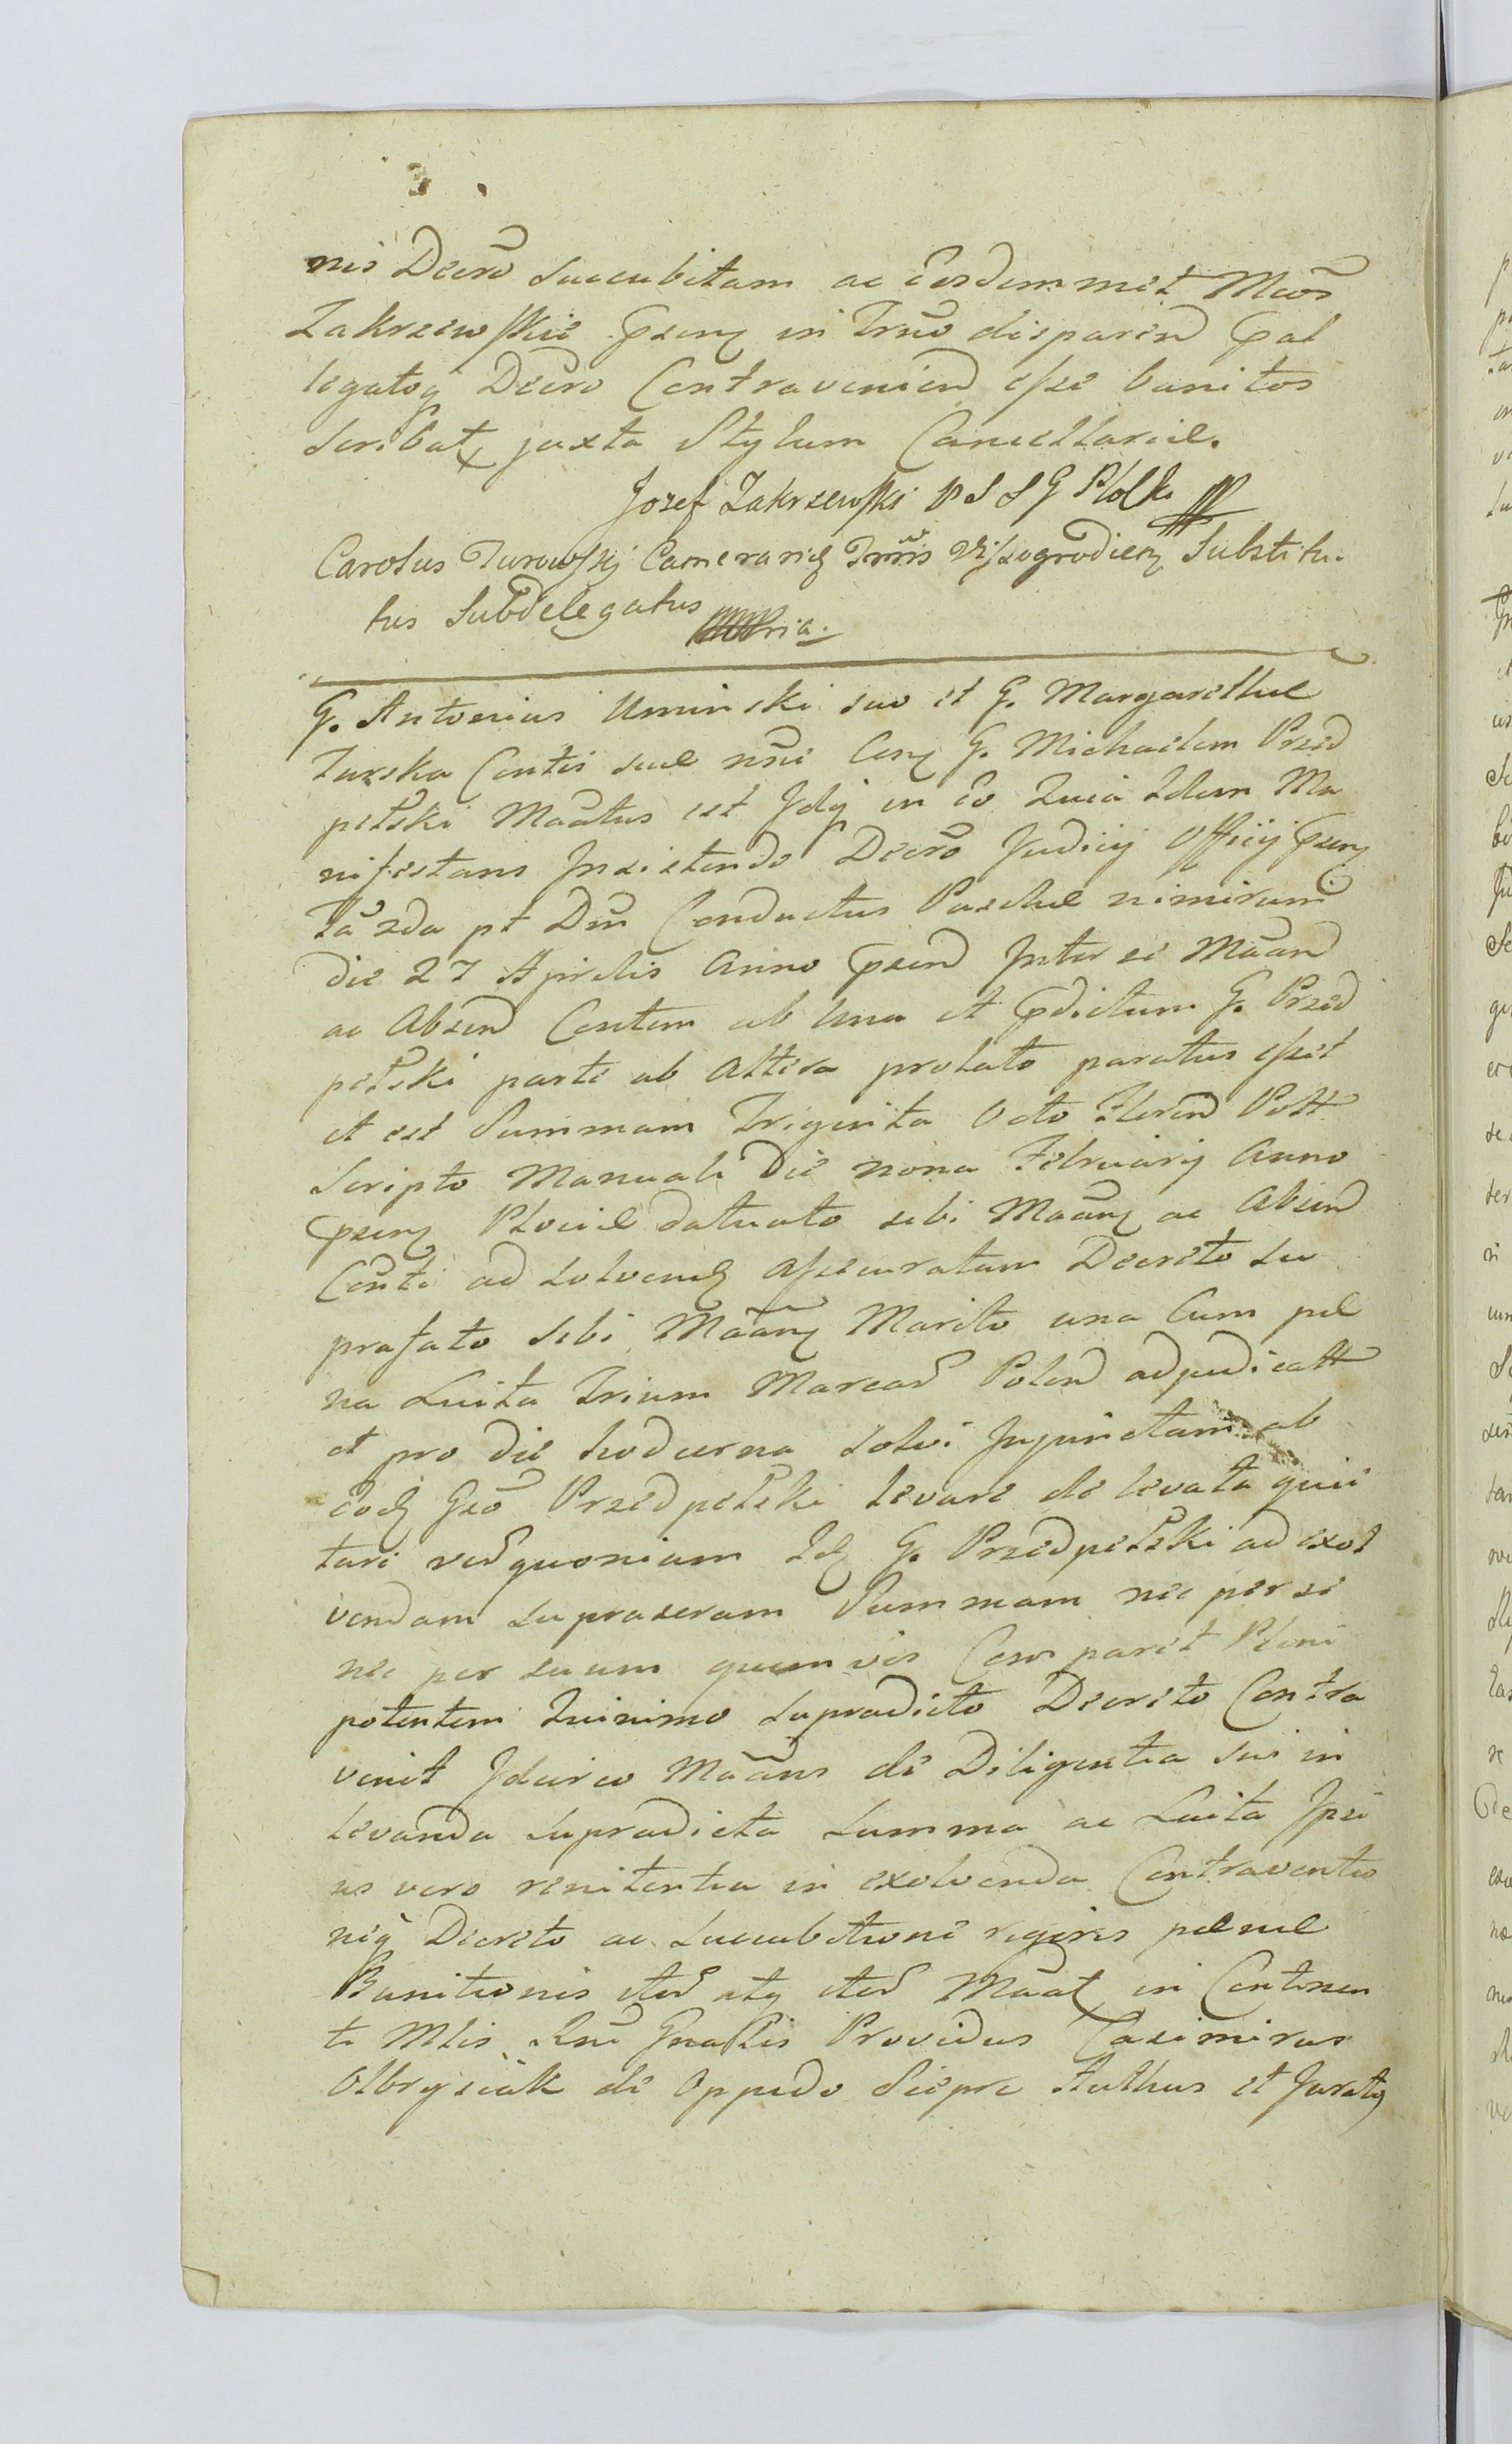 nis Decro succubitam ac Eosdem met Mcos
Zakrzewskie psenq in Trno disparend pal
legatoq Decro Contraveniend esse banitos
scribat juxta Stylum Cancellariæ.
Jozef Zakrzewski P S S G Plocki
Carolus Turowskj Camerariq Trrris Wyszogrodien Substitu-
tus Subdelegatus mpria.
G. Antonius Uminski suo et G. Margarethæ
Turska Contis suæ nne Conq G. Michaelem Przed
petski Maatus est Idq in Eo Quia Idem Ma
nifestans Insistendo Decro Judicij Officij psenq
Ta 2da pt Dni Conductus Paschæ nimirum
die 27 Aprilis Anno psend Inter se Maand
ac Absend Contem ab una et pdictum G. Przed
petski parte ab Altera prolato paratus esset
et est Summam Triginta Octo Floren Poll
Scripto Manuali Die nona Februarij Anno
psenq Plociæ datuato sibi Maanq ac Absend
Conti ad solvend Assecuratam Decreto su
prafato sibi Maanq Marito una Cum pæ
na Luita Trium Marcar Polon adjudicatt
et pro die hodierna solvi Injunctam ab
Eod Gso Przedpetski levare de levata quie
tare verq quoniam Id G. Przedpetski ad exol
vendam supraseram Summam nec per se
nec per suum quemvis Comparet Pleni
potentem Quinimo supradicto Decreto Contra
venit Idcirco Maans de Diligentia sui in
levanda supradicta summa ac Luita Ipsi
us vero renitentia in exolvenda Contraventio
niq Decreto ac succubitione vigoris pænæ
Banitionis iter atq iter Maat in Continen
ti Mtis Rni Gnalis Providus Casimirus
Olbrysiak de Oppido Sieprc Authus et Juratq